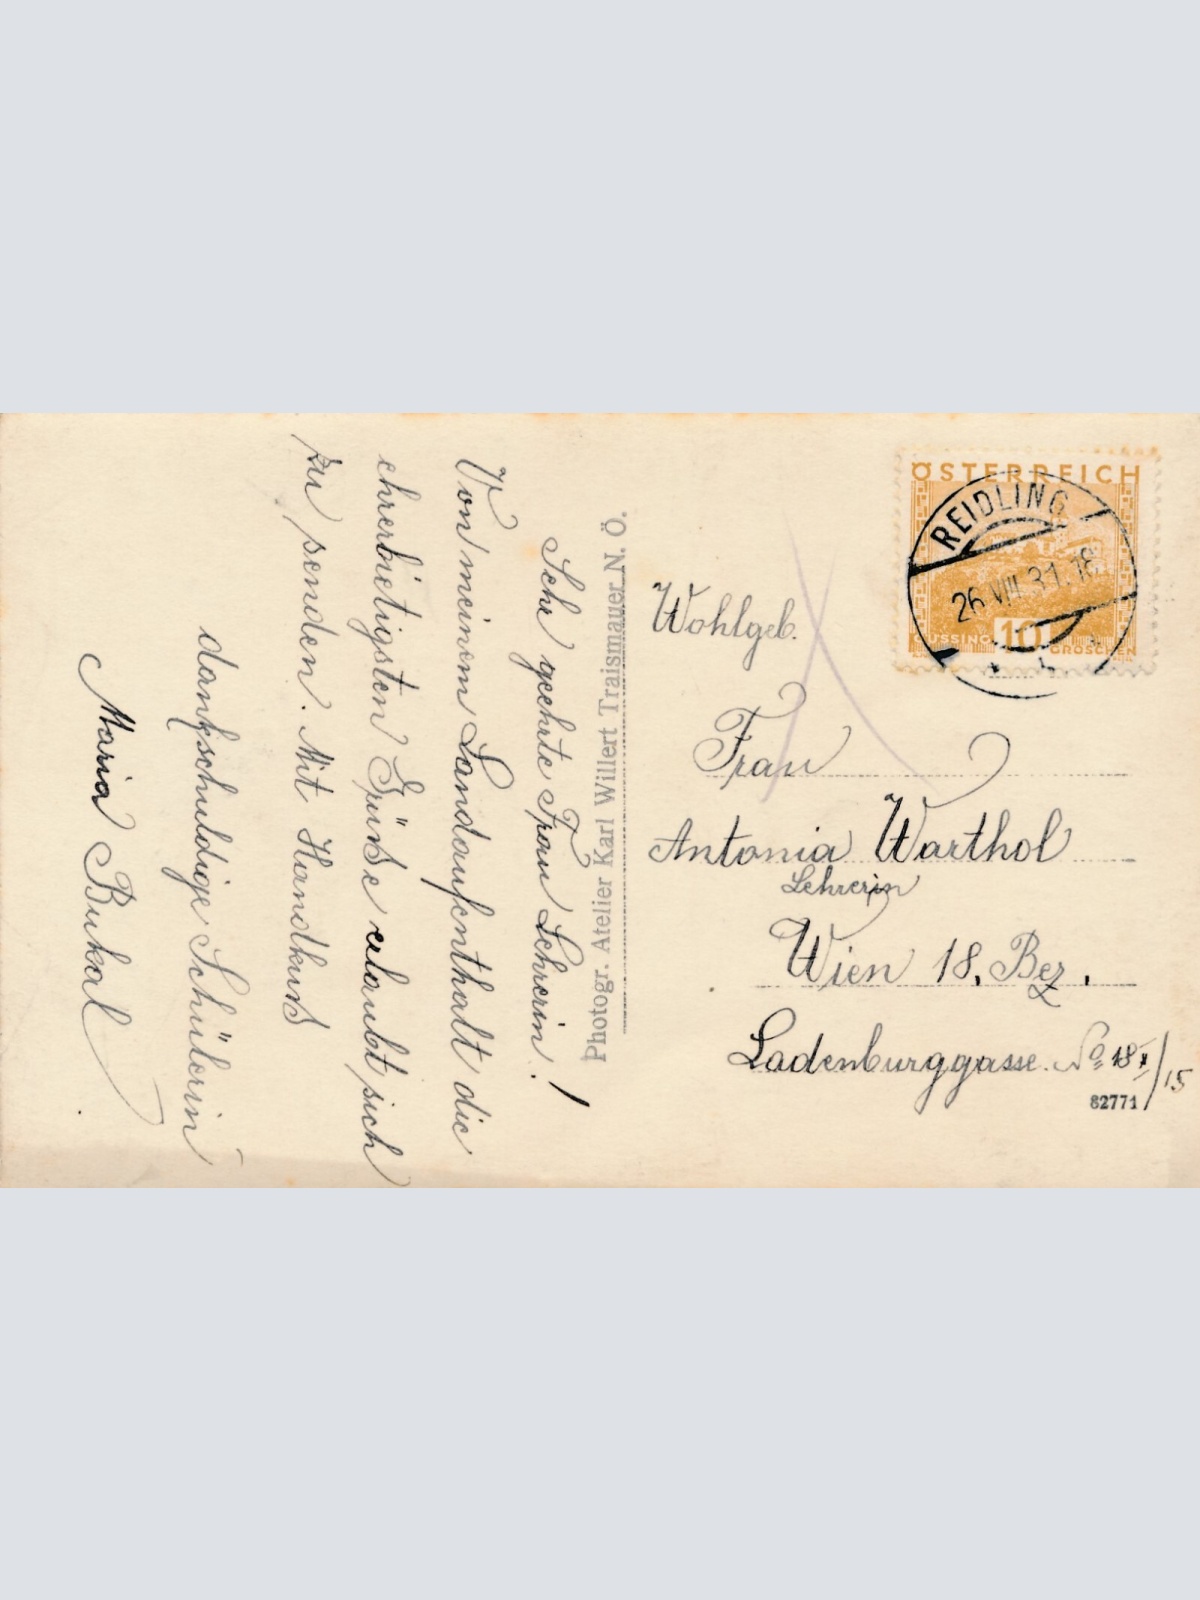 Sehr geehrte Frau Lehrerin!
Von meinem Landaufenthalt die
ehrerbietigsten Grüße erlaubt sich
zu senden. Mit Handkuß
dankschuldige Schülerin
Maria Bukal
Photogr. Atelier Karl Willert Traismauer N. Ö.
ÖSTERREICH
REIDLING
26 VIII 31.18
GÜSSING 10 GROSCHEN
Wohlgeb.
Frau
Antonia Warthol
Lehrerin
Wien 18. Bez.
Ladenburggasse. No 18
/15
82771